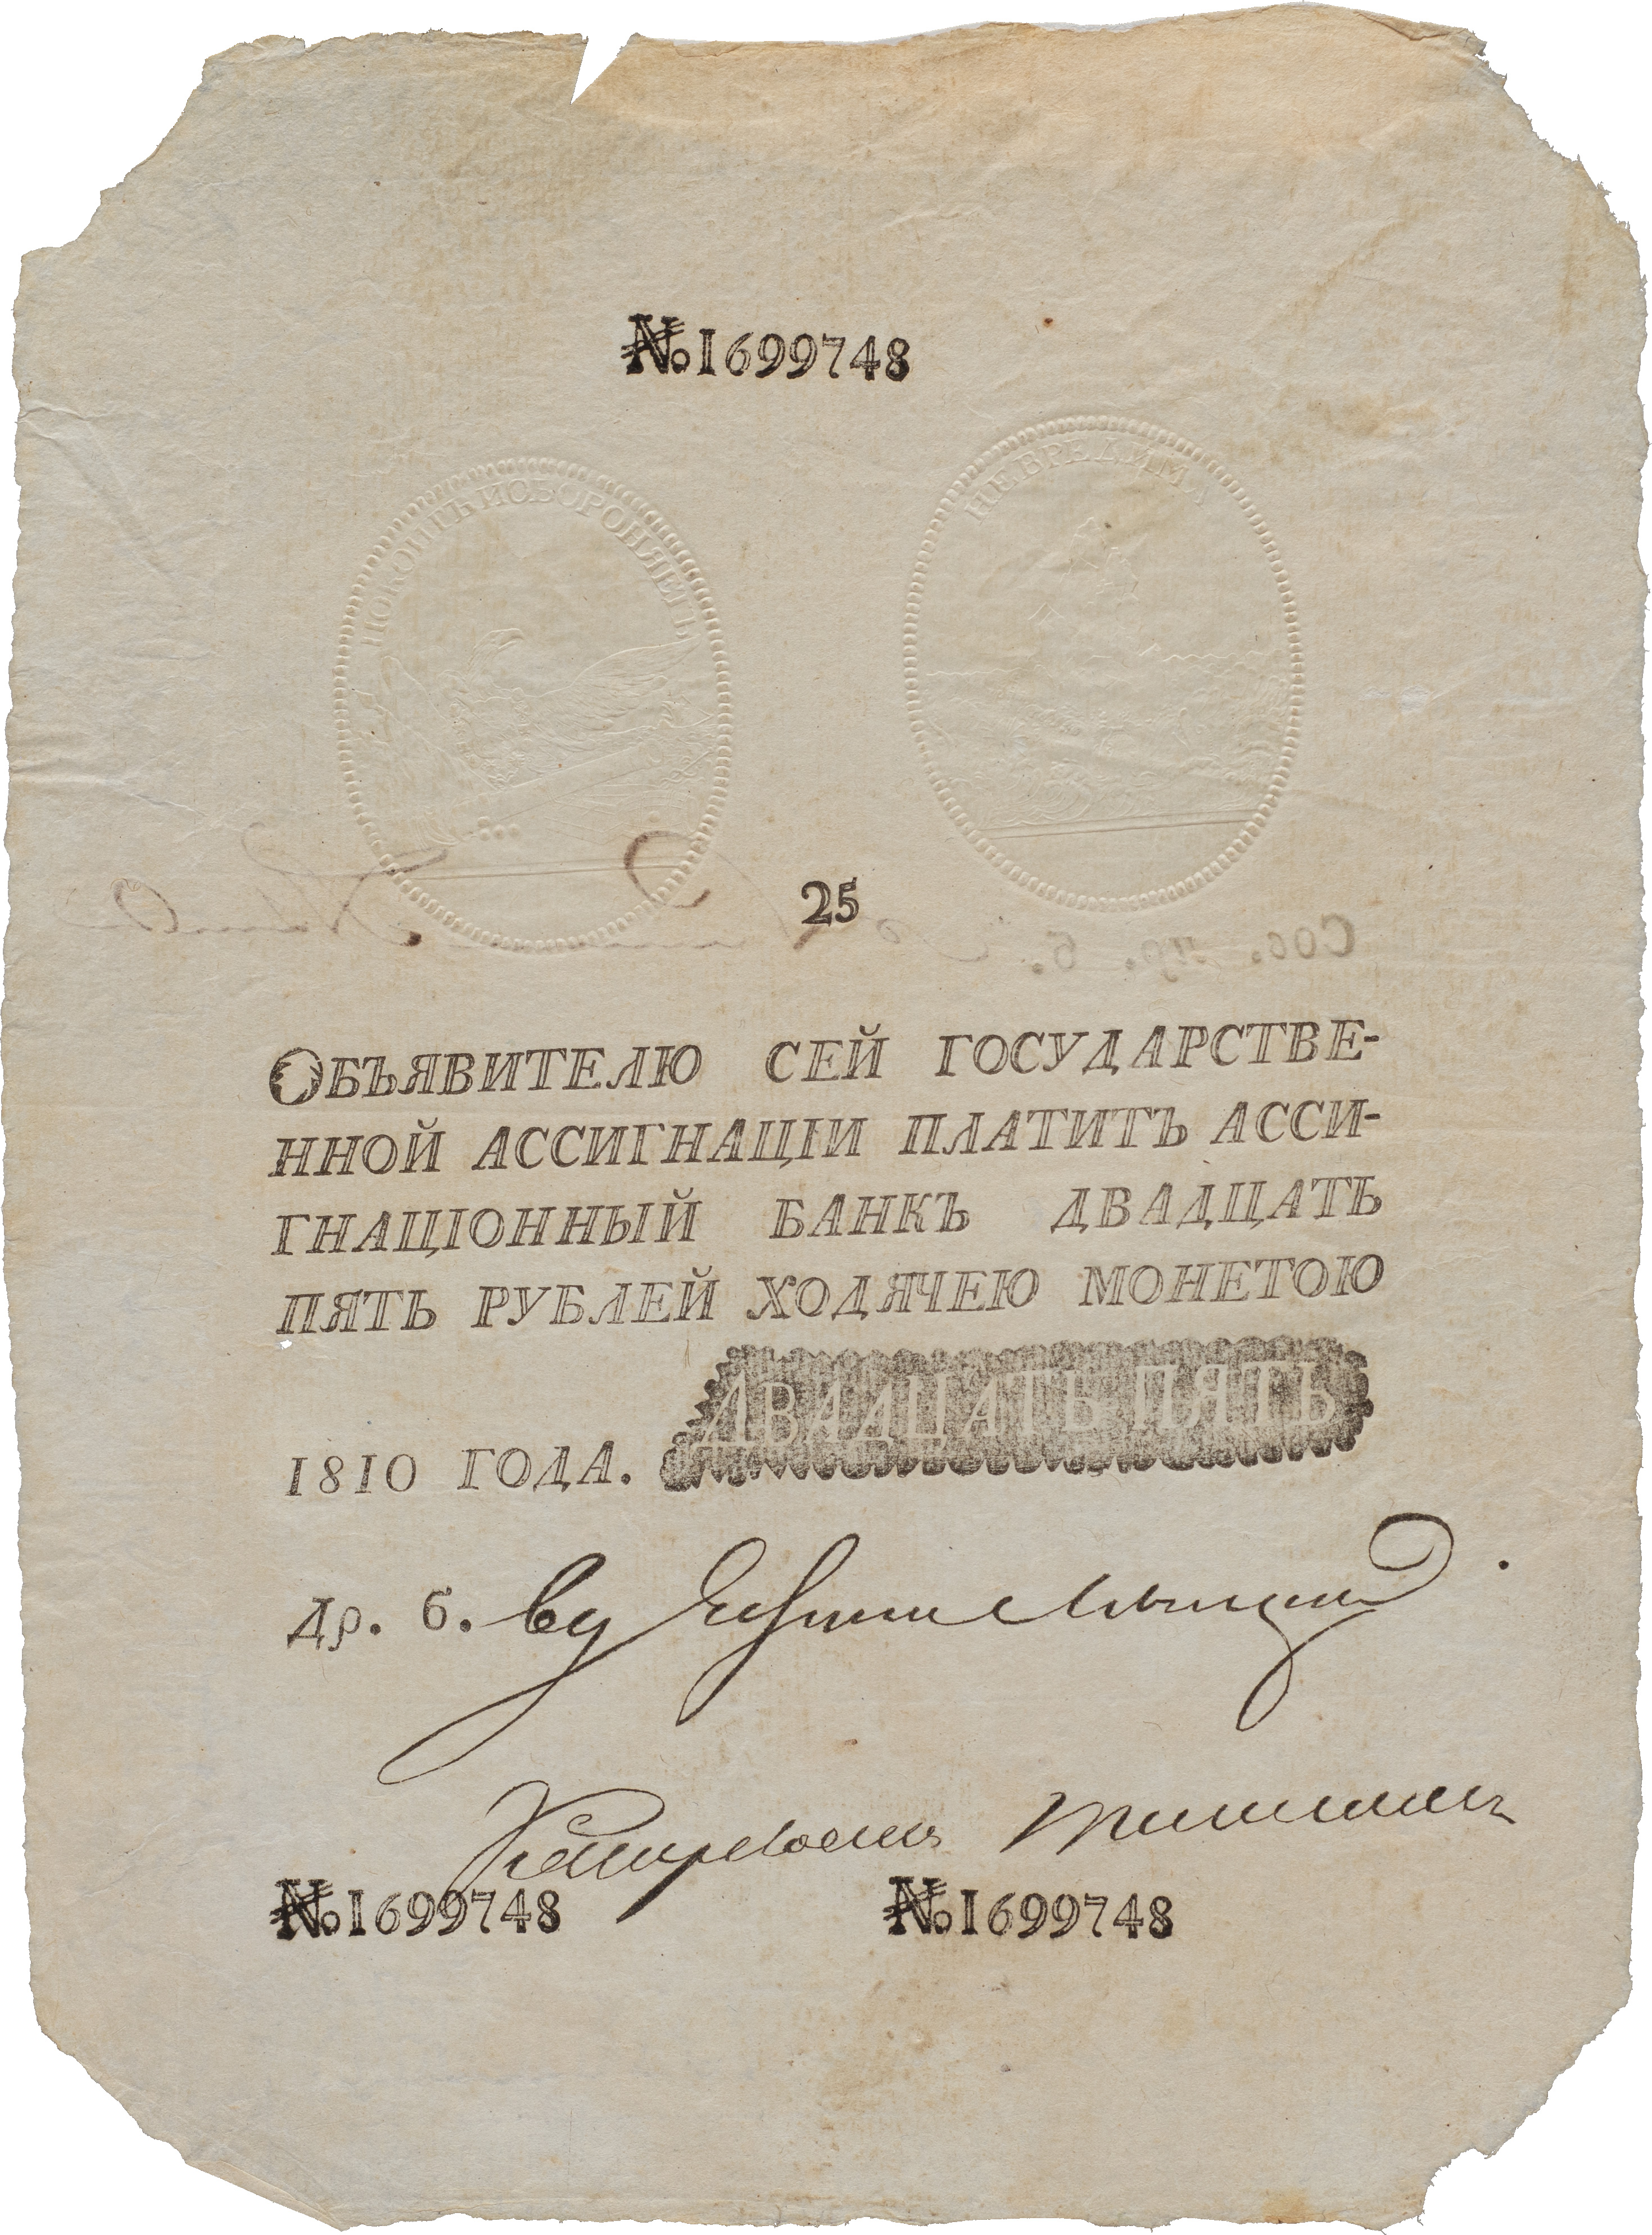 №1699748
ПОКОИТЪ И ОБОРОНЯЕТЪ
НЕВРЕДИМА
25
Сос. пр. б.
ОБЪЯВИТЕЛЮ СЕЙ ГОСУДАРСТВЕ-
ННОЙ АССИГНАЦІИ ПЛАТИТЪ АССИ-
ГНАЦІОННЫЙ БАНКЪ ДВАДЦАТЬ
ПЯТЬ РУБЛЕЙ ХОДЯЧЕЮ МОНЕТОЮ
ДВАДЦАТЬ ПЯТЬ
1810 ГОДА.
др. б.
№1699748 №1699748